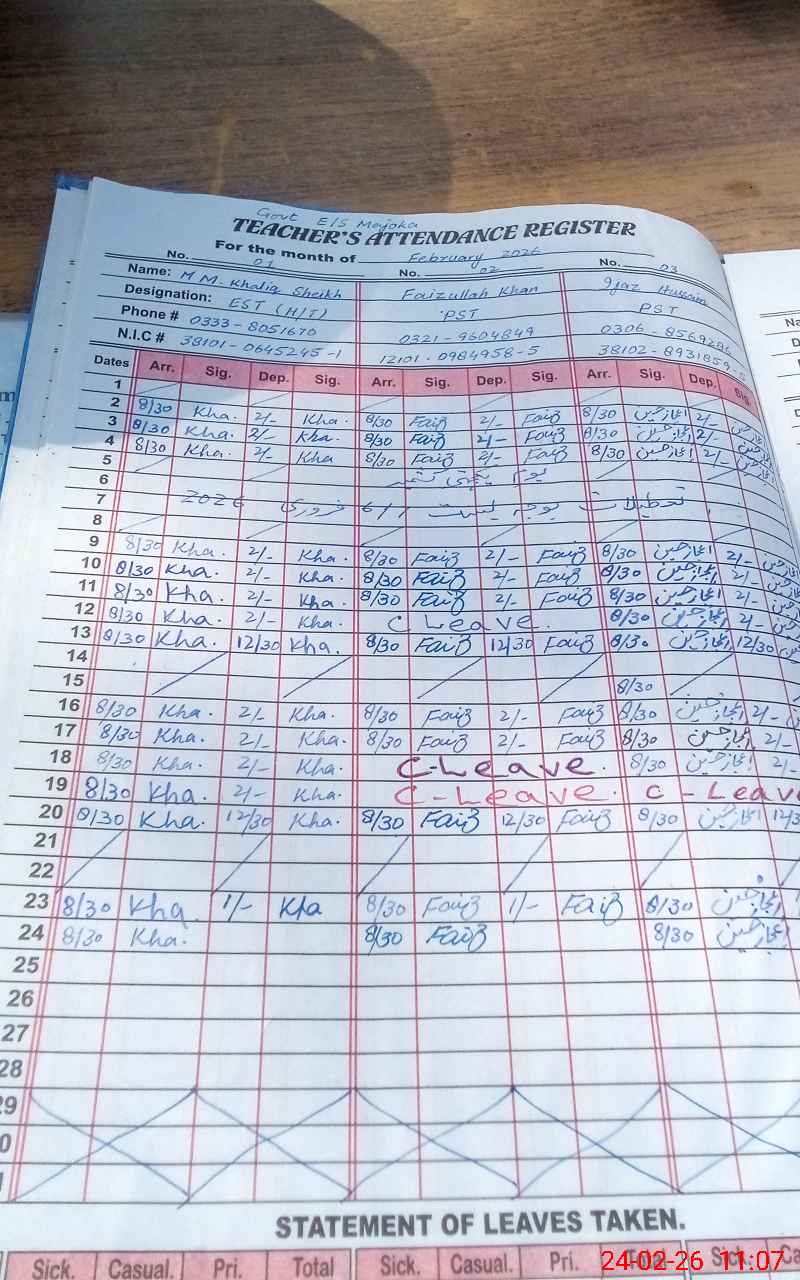 Govt E/S Majoka
TEACHER'S ATTENDANCE REGISTER
For the month of February 2026
No. 01 No. 02 No. 03
Name: M M. Khaliq Sheikh Faizullah Khan Ijaz Hussain
Designation: EST (H/T) PST PST
Phone # 0333-8051670 0321-9604849 0306-8569286
N.I.C # 38101-0645245-1 12101-0984958-5 38102-8931859-5
Dates Arr. Sig. Dep. Sig. Arr. Sig. Dep. Sig. Arr. Sig. Dep. Sig.
1
2 8/30 Kha. 2/- Kha. 8/30 Faiz 2/- Faiz 8/30 اعجاز حسین 2/- اعجاز حسین
3 8/30 Kha. 2/- Kha. 8/30 Faiz 2/- Faiz 8/30 اعجاز حسین 2/- اعجاز حسین
4 8/30 Kha. 2/- Kha 8/30 Faiz 2/- Faiz 8/30 اعجاز حسین 2/- اعجاز حسین
5 یوم یکجہتی کشمیر
6
7 تعطیلات بوجہ بسنت 6/7 فروری 2026
8
9 8/30 Kha. 2/- Kha. 8/30 Faiz 2/- Faiz 8/30 اعجاز حسین 2/- اعجاز حسین
10 8/30 Kha. 2/- Kha. 8/30 Faiz 2/- Faiz 8/30 اعجاز حسین 2/- اعجاز حسین
11 8/30 Kha. 2/- Kha. 8/30 Faiz 2/- Faiz 8/30 اعجاز حسین 2/- اعجاز حسین
12 8/30 Kha. 2/- Kha. C Leave. 8/30 اعجاز حسین 2/- اعجاز حسین
13 8/30 Kha. 12/30 Kha. 8/30 Faiz 12/30 Faiz 8/30 اعجاز حسین 12/30
14
15 8/30
16 8/30 Kha. 2/- Kha. 8/30 Faiz 2/- Faiz 8/30 اعجاز حسین 2/-
17 8/30 Kha. 2/- Kha. 8/30 Faiz 2/- Faiz 8/30 اعجاز حسین 2/-
18 8/30 Kha. 2/- Kha. C-Leave. 8/30 اعجاز حسین 2/-
19 8/30 Kha. 2/- Kha. C-Leave. C-Leav
20 8/30 Kha. 12/30 Kha. 8/30 Faiz 12/30 Faiz 8/30 اعجاز حسین 12/3
21
22
23 8/30 Kha. 1/- Kha 8/30 Faiz 1/- Faiz 8/30 اعجاز حسین
24 8/30 Kha. 8/30 Faiz 8/30 اعجاز حسین
25
26
27
28
29
0
STATEMENT OF LEAVES TAKEN.
Sick. Casual. Pri. Total Sick. Casual. Pri. Sick. Ca
24-02-26 11:07